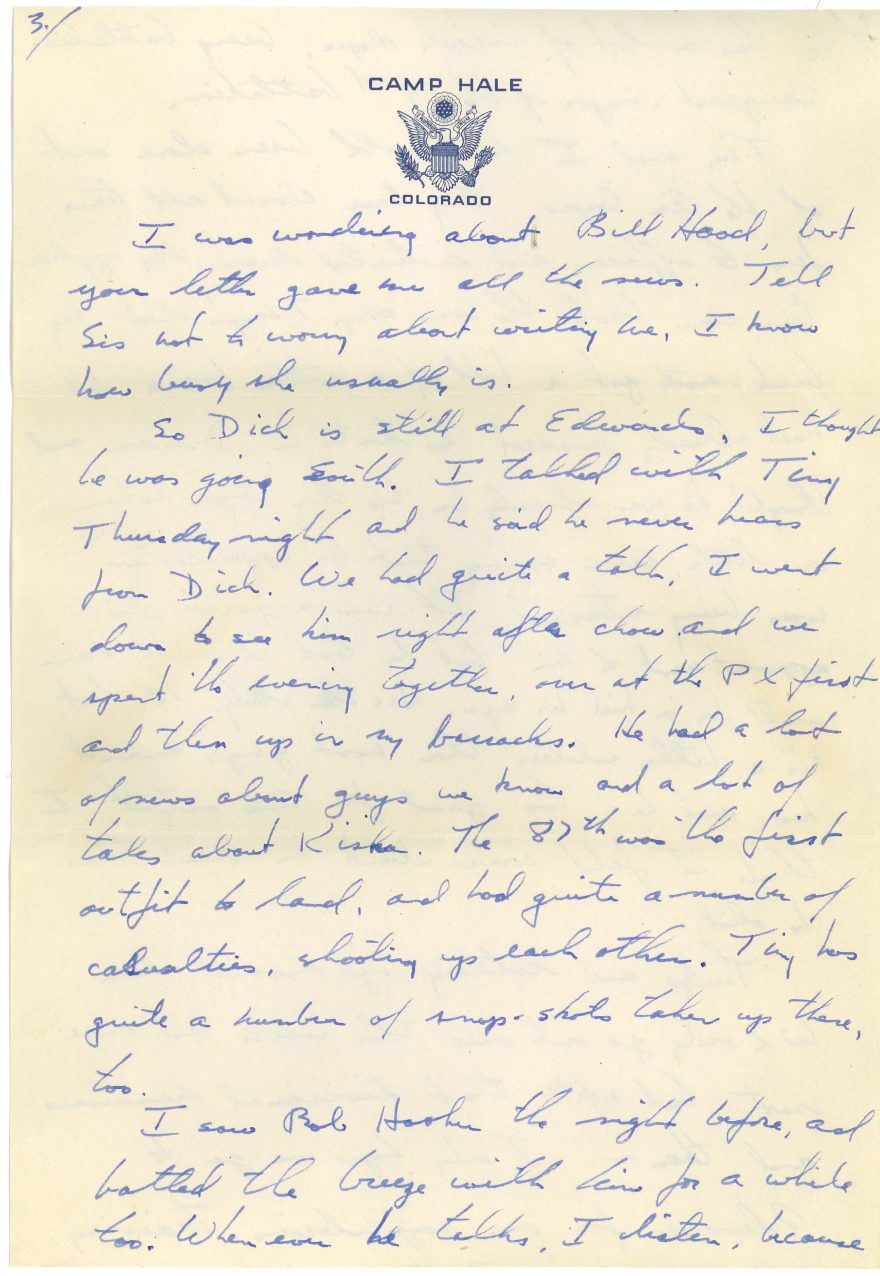 3./
CAMP HALE
COLORADO
I was wondering about Bill Hood, but
your letter gave me all the news. Tell
Sis not to worry about writing me, I know
how busy she usually is.
So Dick is still at Edwards, I thought
he was going South. I talked with Tiny
Thursday night and he said he never hears
from Dick. We had quite a talk, I went
down to see him right after chow and we
spent the evening together, over at the PX first
and then up in my barracks. He had a lot
of news about guys we know and a lot of
tales about Kiska. The 87th was the first
outfit to land, and had quite a number of
casualties, shooting up each other. Tiny has
quite a number of snap-shots taken up there,
too.
I saw Bob the night before, and
batted the breeze with him for a while
too. When ever he talks, I listen, because